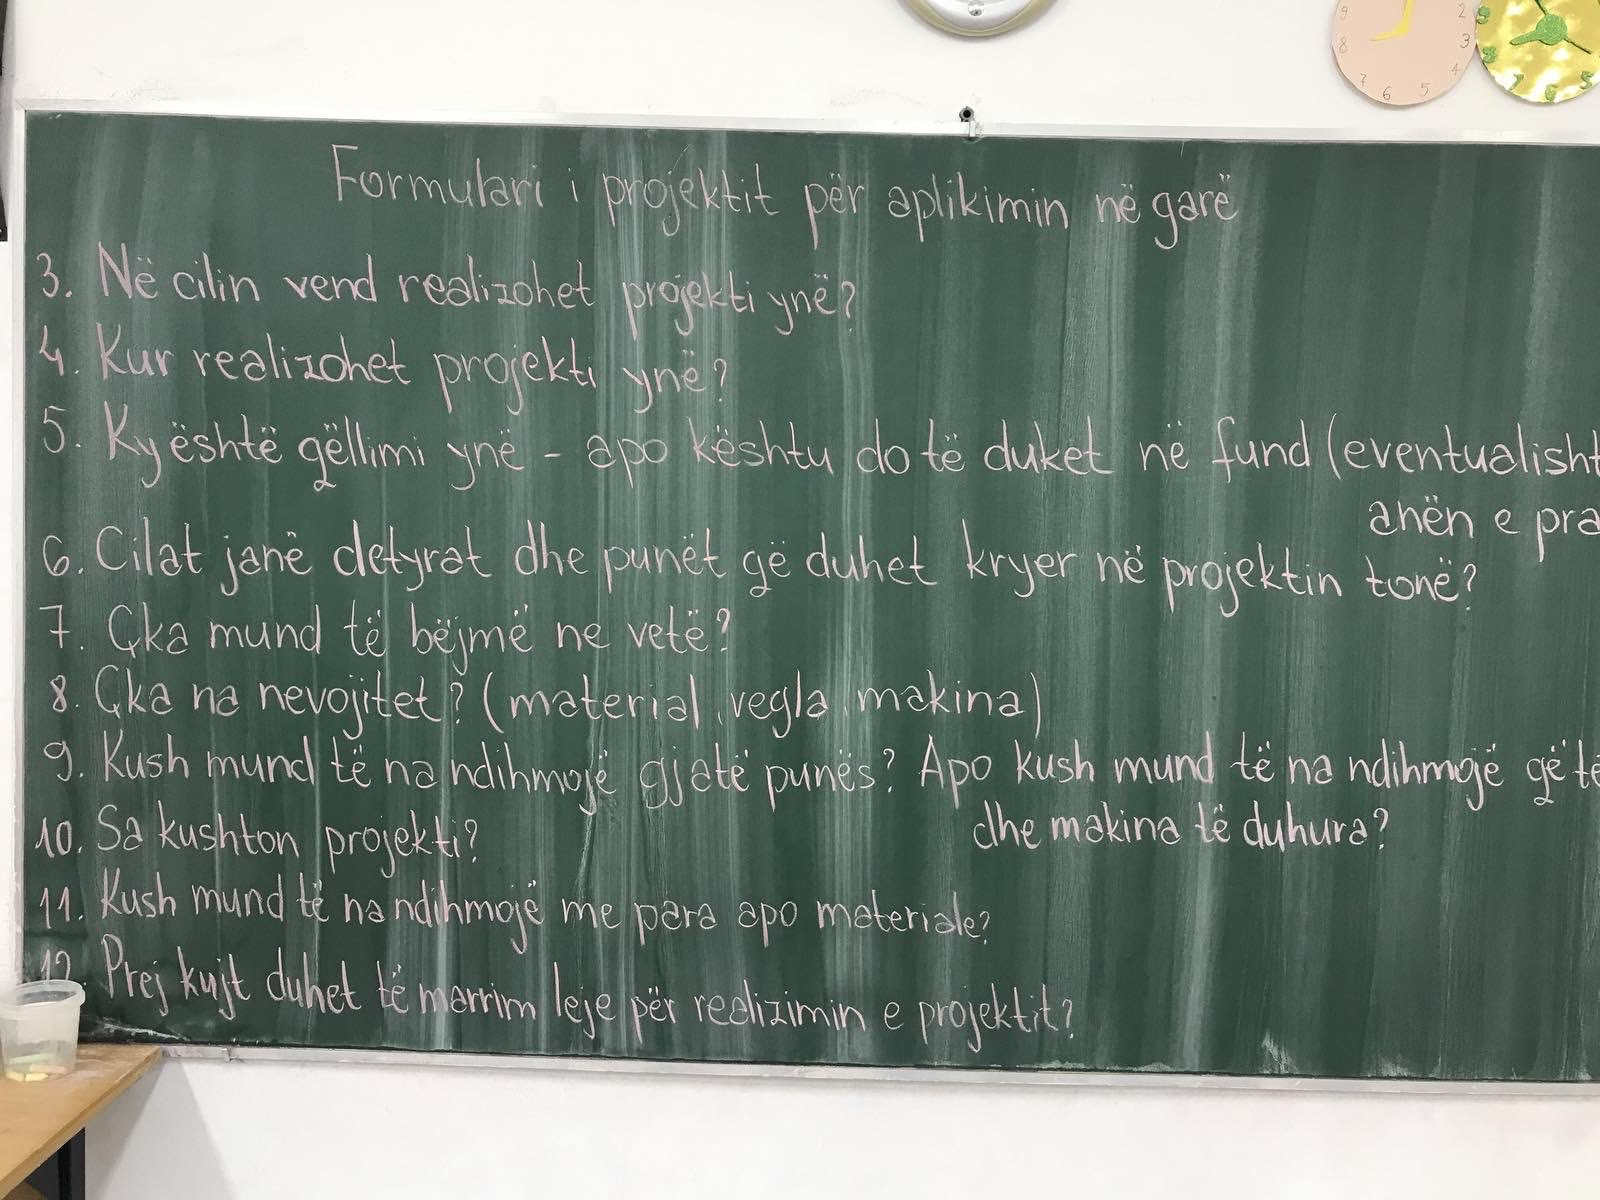 Formulari i projektit për aplikimin në garë
3. Në cilin vend realizohet projekti ynë?
4. Kur realizohet projekti ynë?
5. Ky është qëllimi ynë - apo kështu do të duket në fund (eventualisht
anën e pra
6. Cilat janë detyrat dhe punët që duhet kryer në projektin tonë?
7. Çka mund të bëjmë ne vetë?
8. Çka na nevojitet? (material, vegla, makina)
9. Kush mund të na ndihmojë gjatë punës? Apo kush mund të na ndihmojë që të
dhe makina të duhura?
10. Sa kushton projekti?
11. Kush mund të na ndihmojë me para apo materiale?
12. Prej kujt duhet të marrim leje për realizimin e projektit?